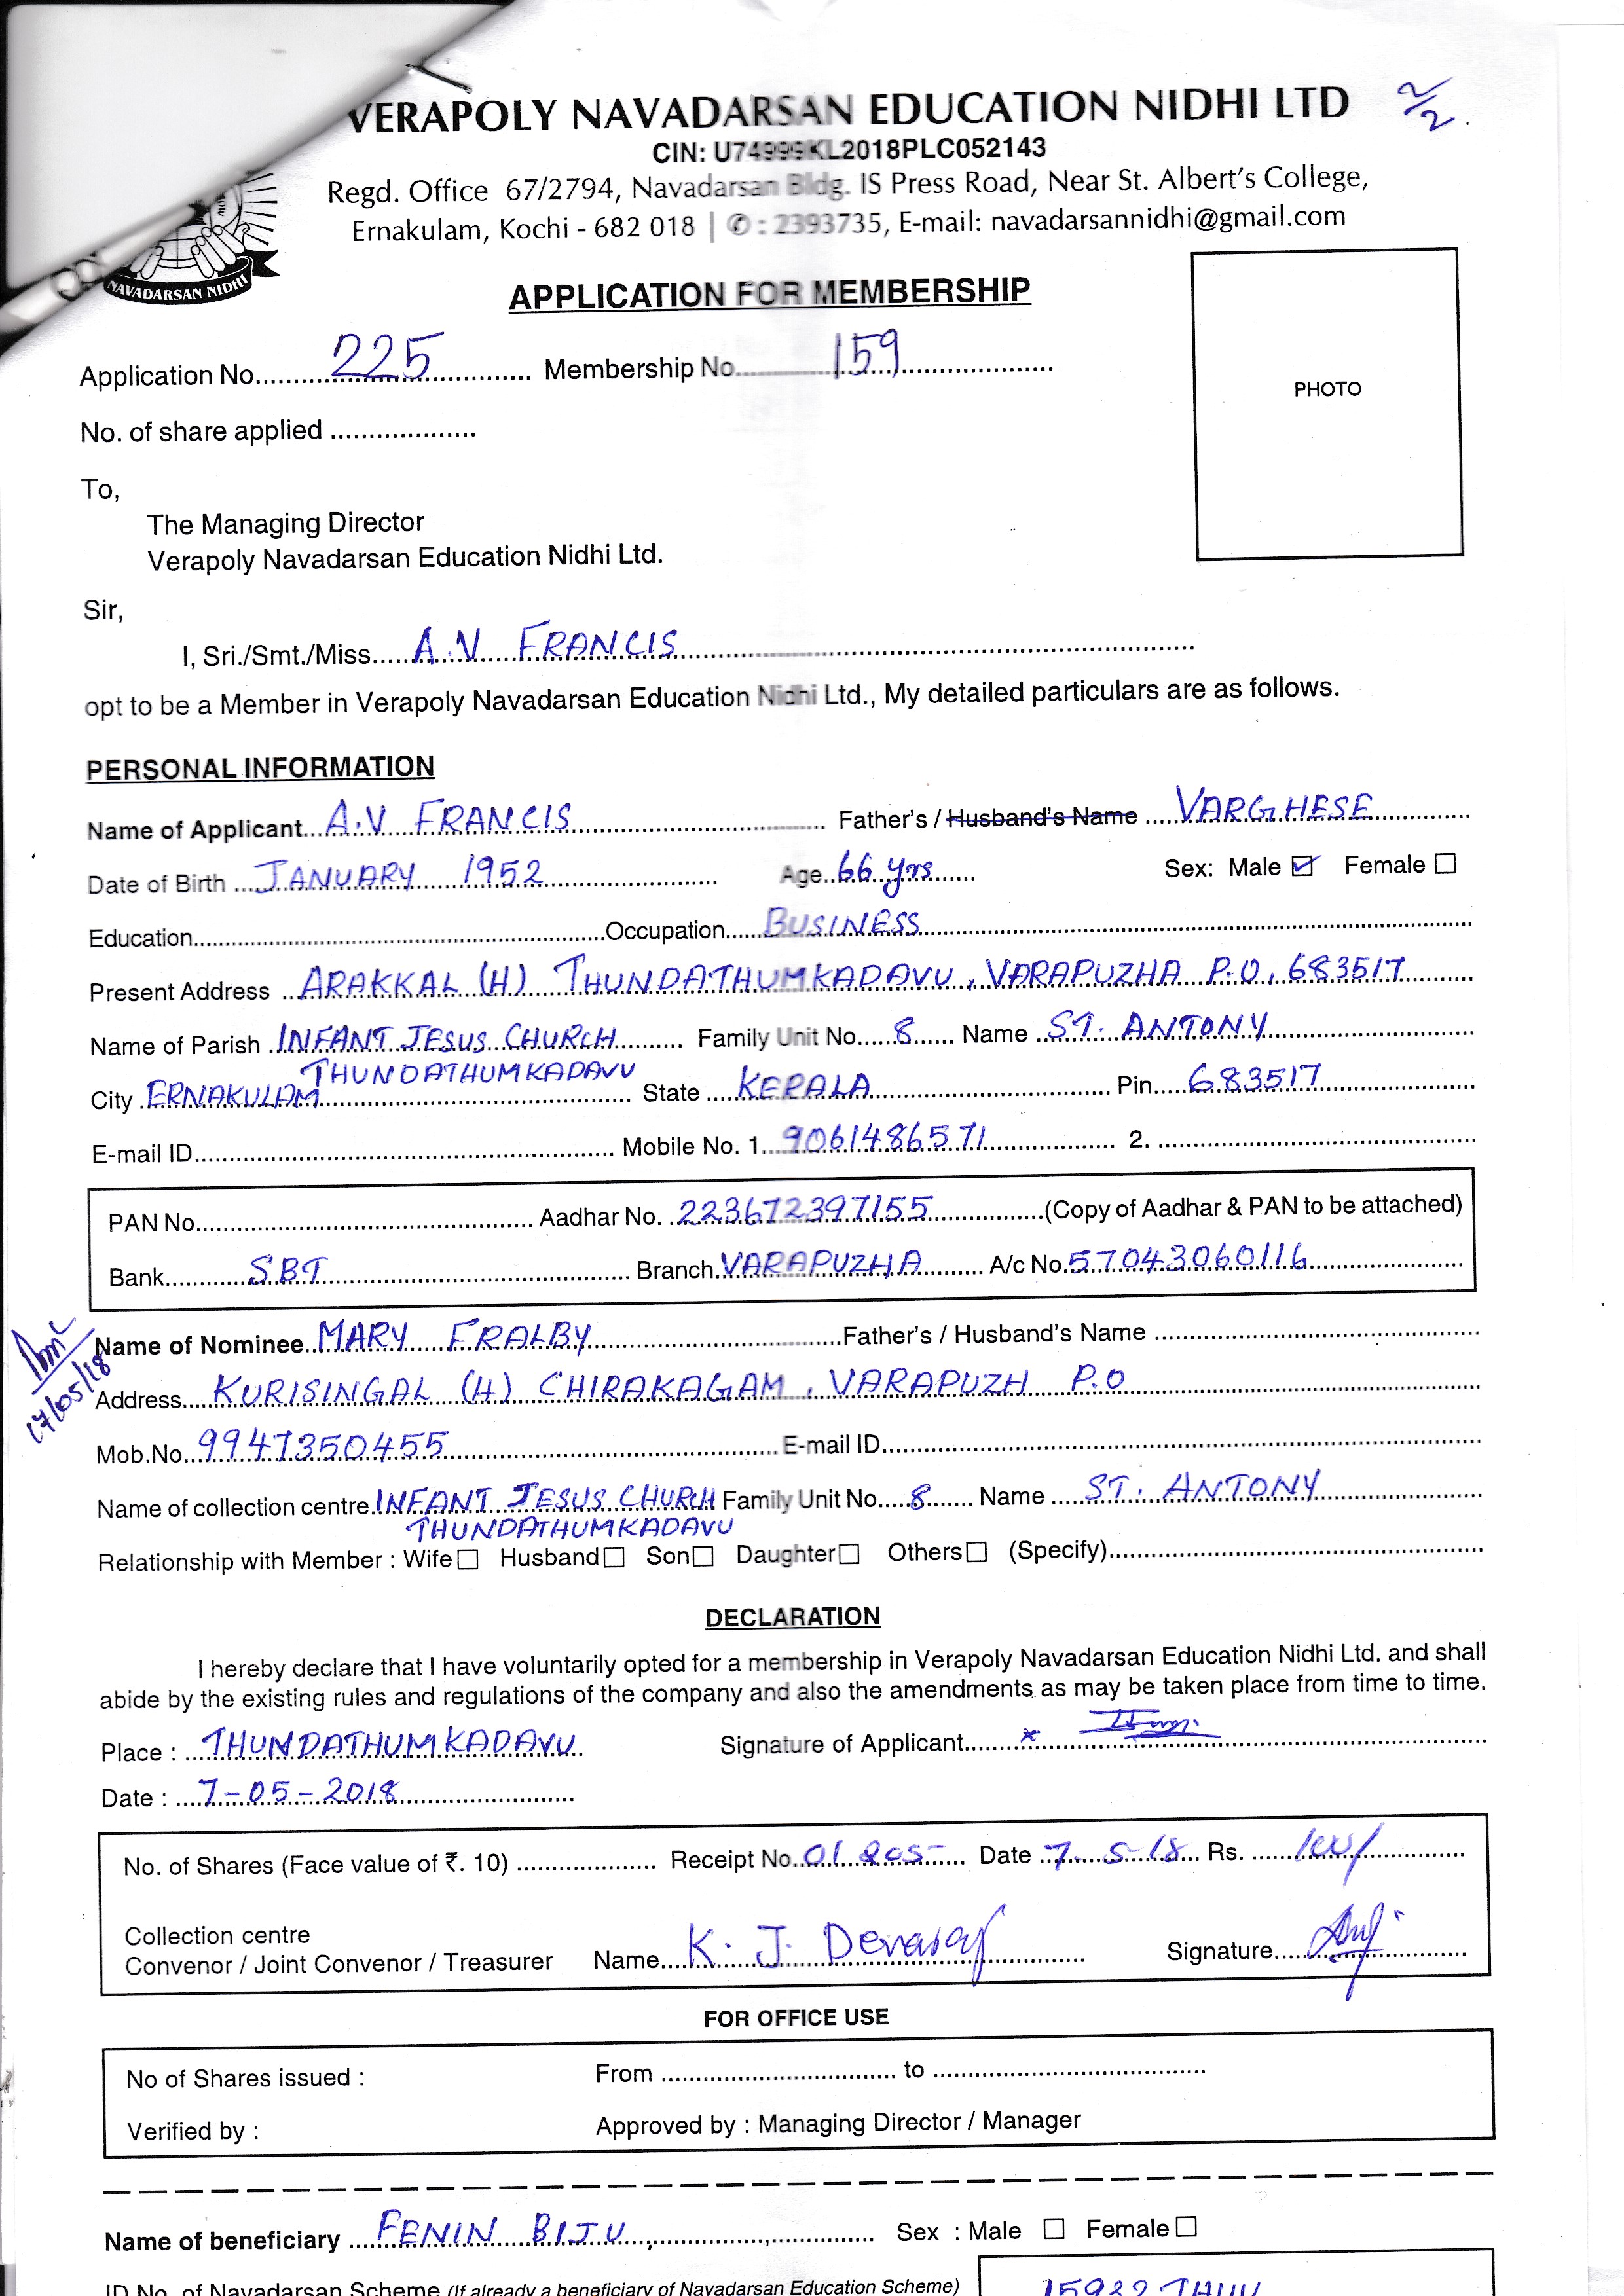 VERAPOLY NAVADARSAN EDUCATION NIDHI LTD 2/2
CIN: U74999KL2018PLC052143
Regd. Office 67/2794, Navadarsan Bldg. IS Press Road, Near St. Albert's College,
Ernakulam, Kochi - 682 018 | ✆: 2393735, E-mail: navadarsannidhi@gmail.com
NAVADARSAN NIDHI
APPLICATION FOR MEMBERSHIP
PHOTO
Application No. 225 Membership No. 159
No. of share applied
To,
The Managing Director
Verapoly Navadarsan Education Nidhi Ltd.
Sir,
I, Sri./Smt./Miss. A.V FRANCIS
opt to be a Member in Verapoly Navadarsan Education Nidhi Ltd., My detailed particulars are as follows.
PERSONAL INFORMATION
Name of Applicant A.V FRANCIS Father's / Husband's Name VARGHESE
Date of Birth JANUARY 1952 Age 66 yrs Sex: Male ☑ Female ☐
Education Occupation BUSINESS
Present Address ARAKKAL (H) THUNDATHUMKADAVU, VARAPUZHA P.O, 683517
Name of Parish INFANT JESUS CHURCH Family Unit No. 8 Name ST. ANTONY
THUNDATHUMKADAVU
City ERNAKULAM State KERALA Pin 683517
E-mail ID Mobile No. 1. 9061486571 2.
PAN No. Aadhar No. 223672397155 (Copy of Aadhar & PAN to be attached)
Bank SBT Branch VARAPUZHA A/c No. 57043060116
Name of Nominee MARY FRALBY Father's / Husband's Name
17/05/18
Address KURISINGAL (H) CHIRAKAGAM, VARAPUZH P.O
Mob.No. 9947350455 E-mail ID
Name of collection centre INFANT JESUS CHURCH Family Unit No. 8 Name ST. ANTONY
THUNDATHUMKADAVU
Relationship with Member : Wife ☐ Husband ☐ Son ☐ Daughter ☐ Others ☐ (Specify)
DECLARATION
I hereby declare that I have voluntarily opted for a membership in Verapoly Navadarsan Education Nidhi Ltd. and shall
abide by the existing rules and regulations of the company and also the amendments as may be taken place from time to time.
Place : THUNDATHUMKADAVU Signature of Applicant
Date : 7-05-2018
No. of Shares (Face value of ₹. 10) Receipt No. Date 7-5-18 Rs.
Collection centre
Convenor / Joint Convenor / Treasurer Name K. J. Devasay Signature
FOR OFFICE USE
No of Shares issued : From to
Verified by : Approved by : Managing Director / Manager
Name of beneficiary FENIN BIJU Sex : Male ☐ Female ☐
ID No. of Navadarsan Scheme (If already a beneficiary of Navadarsan Education Scheme)